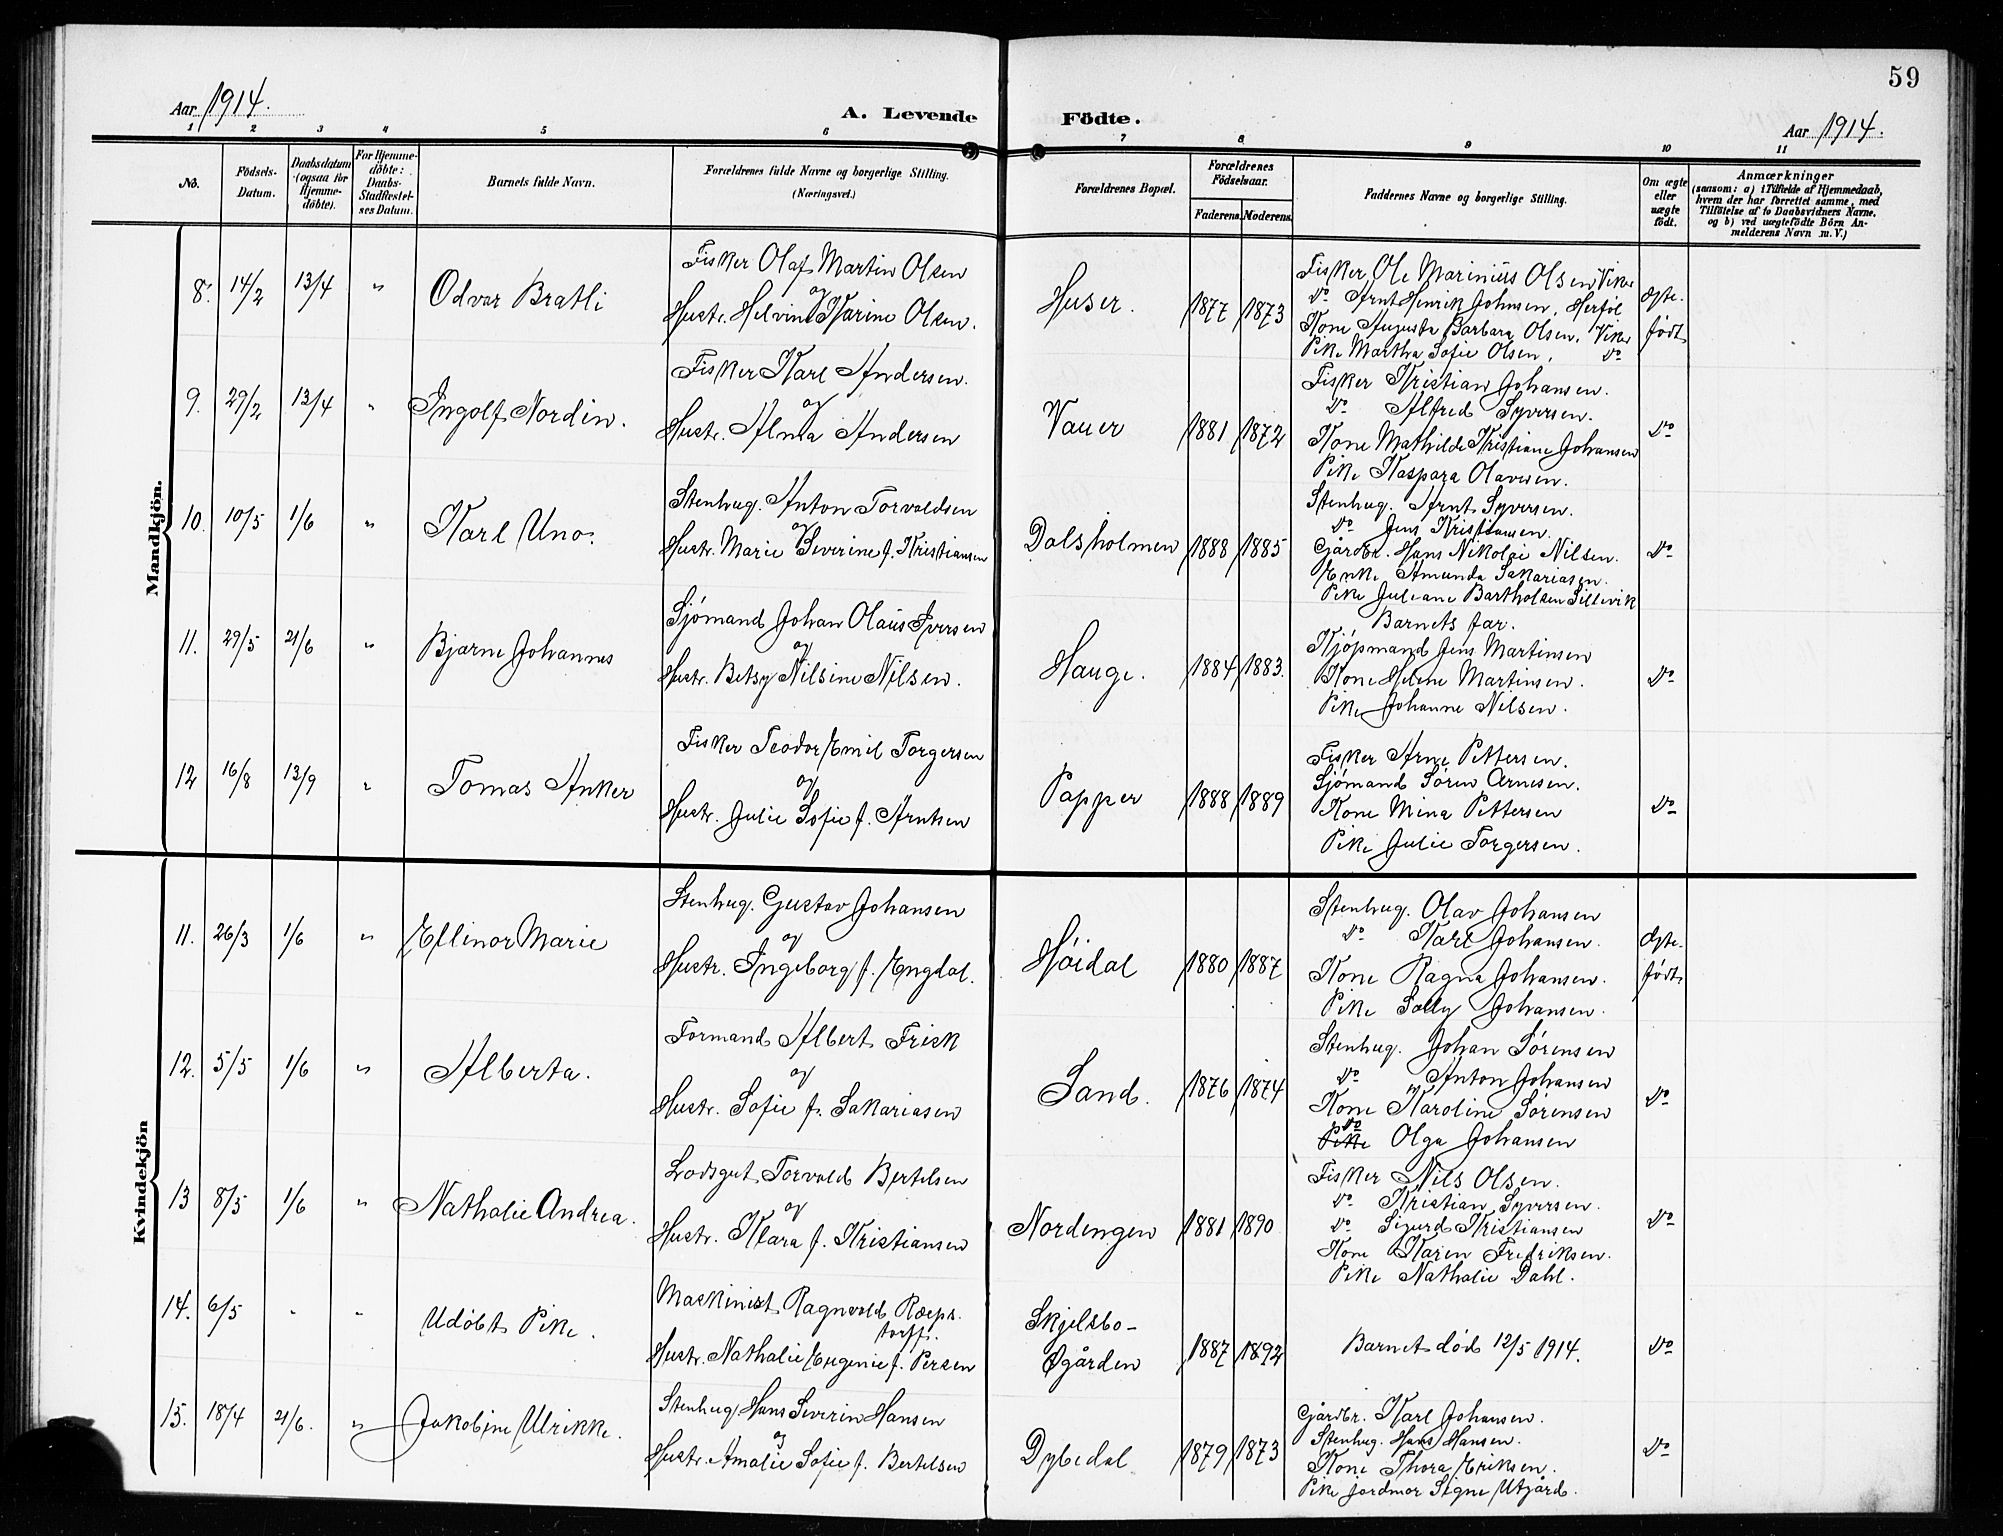 59
Aar 1914.
A. Levende Födte.
Aar 1914.
1 2 3 4 5 6 7 8 9 10 11
No.
Födsels-
Datum.
Daabsdatum
(ogsaa for
Hjemme-
döbte).
For Hjemme-
döbte:
Daabs-
Stadfæstel-
ses Datum.
Barnets fulde Navn.
Forældrenes fulde Navne og borgerlige Stilling.
(Næringsvei.)
Forældrenes Bopæl.
Forældrenes
Födselsaar.
Faderens. Moderens.
Faddernes Navne og borgerlige Stilling.
Om ægte
eller
uægte
födt.
Anmærkninger
(saasom: a) i Tilfælde af Hjemmedaab,
hvem der har forrettet samme, med
Tilföielse af to Daabsvidners Navne,
og b) ved uægtefödte Börn An-
melderens Navn m. V.)
Mandkjön.
8. 14/2 13/4 " Odvar Bratli
Fisker Olaf Martin Olsen
og
Hustr. Helvine Karine Olsen.
Huser. 1877 1873
Fisker Ole Marinius Olsen Viker
Do Arnt Henrik Johnsen, Herföl
Kone Augusta Barbara Olsen, Viker
Pike Martha Sofie Olsen, Do
Ægte-
født
9. 29/2 13/4 " Ingolf Nordin.
Fisker Karl Andersen.
og
Hustr. Alma Andersen
Vauer 1881 1872
Fisker Kristian Johansen.
Do Alfred Syversen.
Kone Mathilde Kristiane Johansen
Pike Kaspara Olavesen.
Do
10. 10/5 1/6 " Karl Uno.
Stenhug. Anton Torvaldsen
og
Hustr. Marie Severine f. Kristiansen
Dalsholmen 1888 1885
Stenhug. Arnt Syversen.
Do Jens Kristiansen.
Gårdbr. Hans Nikolai Nilsen.
Enke Amunda Sakariasen.
Pike Juliane Bartholsen Sillevik
Do
11. 29/5 21/6 " Bjarne Johannes
Sjømand Johan Olaus Iversen
og
Hustr. Betsy Nilsine Nilsen.
Hauge. 1884 1883.
Barnets far.
Kjøpmand Jens Martinsen
Kone Helene Martinsen.
Pike Johanne Nilsen.
Do
12 16/8 13/9 " Tomas Anker
Fisker Teodor Emil Torgersen
og
Hustr. Julie Sofie f. Arntsen
Papper 1888 1889
Fisker Arne Pettersen.
Sjømand Søren Arnesen.
Kone Mina Pettersen
Pike Julie Torgersen.
Do
Kvindekjön
11. 26/3 1/6 " Ellinor Marie
Stenhug. Gustav Johansen
og
Hustr. Ingeborg f. Engdal.
Høidal 1880 1887
Stenhug. Olav Johansen
Do Karl Johansen.
Kone Ragna Johansen.
Pike Sally Johansen.
Ægte-
født
12. 5/5 1/6 " Alberta.
Formand Albert Frisk
og
Hustr. Sofie f. Sakariasen
Sand. 1876 1874
Stenhug. Johan Sørensen
Do Anton Johansen
Kone Karoline Sørensen
Do
Pike Olga Johansen
Do
13 8/5 1/6 " Nathalie Andrea.
Lodsgut Torvald Bertelsen
og
Hustr. Klara f. Kristiansen
Nordengen 1881 1890
Fisker Nils Olsen.
Do Kristian Syversen.
Do Sigurd Kristiansen
Kone Karen Fredriksen.
Pike Nathalie Dahl.
Do
14. 6/5 " " Udøbt Pike.
Maskinist Ragnvald Ræps-
torff.
Hustr. Nathalie Eugenie f. Persen
Skjelsbo-
Øgården 1887 1892
Barnet død 12/5 1914.
Do
15. 18/4 21/6. " Jakobine Ulrikke.
Stenhug. Hans Severin Hansen
og
Hustr. Amalie Sofie f. Bertelsen
Dybedal 1879 1873
Gårdbr. Karl Johansen.
Stenhug. Hans Hansen.
Kone Thora Eriksen.
Pike jordmor Signe Utgård.
Do